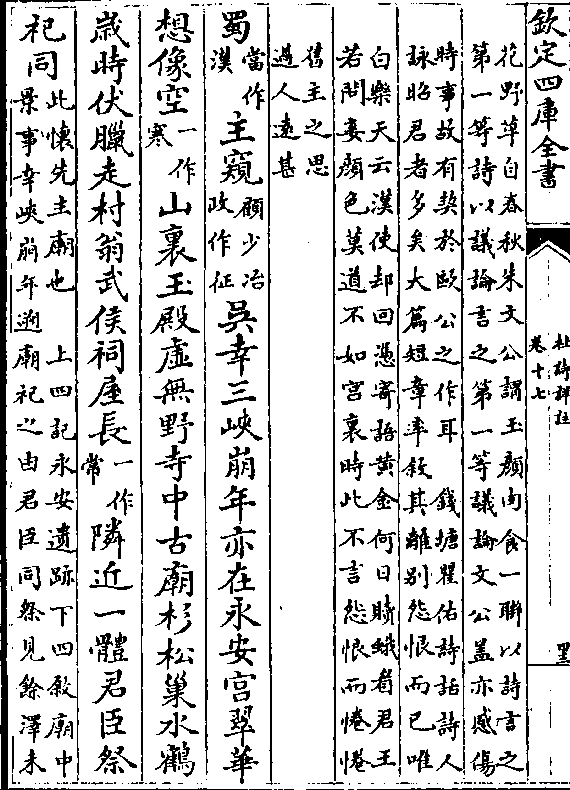 欽定四庫全書
杜詩詳註
卷十七
花野草自春秋朱文公謂玉顏肉食一聯以詩言之
第一等詩以議論言之第一等議論文公蓋亦感傷
時事故有契於歐公之作耳　錢塘瞿佑詩話詩人
詠昭君者多矣大篇短章率敘其離別怨恨而已唯
白樂天云漢使却回憑寄語黃金何日贖蛾眉君王
若問妾顏色莫道不如宮裏時此不言怨恨而惓惓
舊主之思
過人遠甚
蜀當作漢主窺顧少冶政作征吳幸三峽崩年亦在永安宮翠華
想像空一作寒山裏玉殿虛無野寺中古廟杉松巢水鶴
歲時伏臘走村翁武侯祠屋長一作常隣近一體君臣祭
祀同此懷先主廟也　上四記永安遺跡下四敘廟中
景事幸峽崩年遡廟祀之由君臣同祭見餘澤未